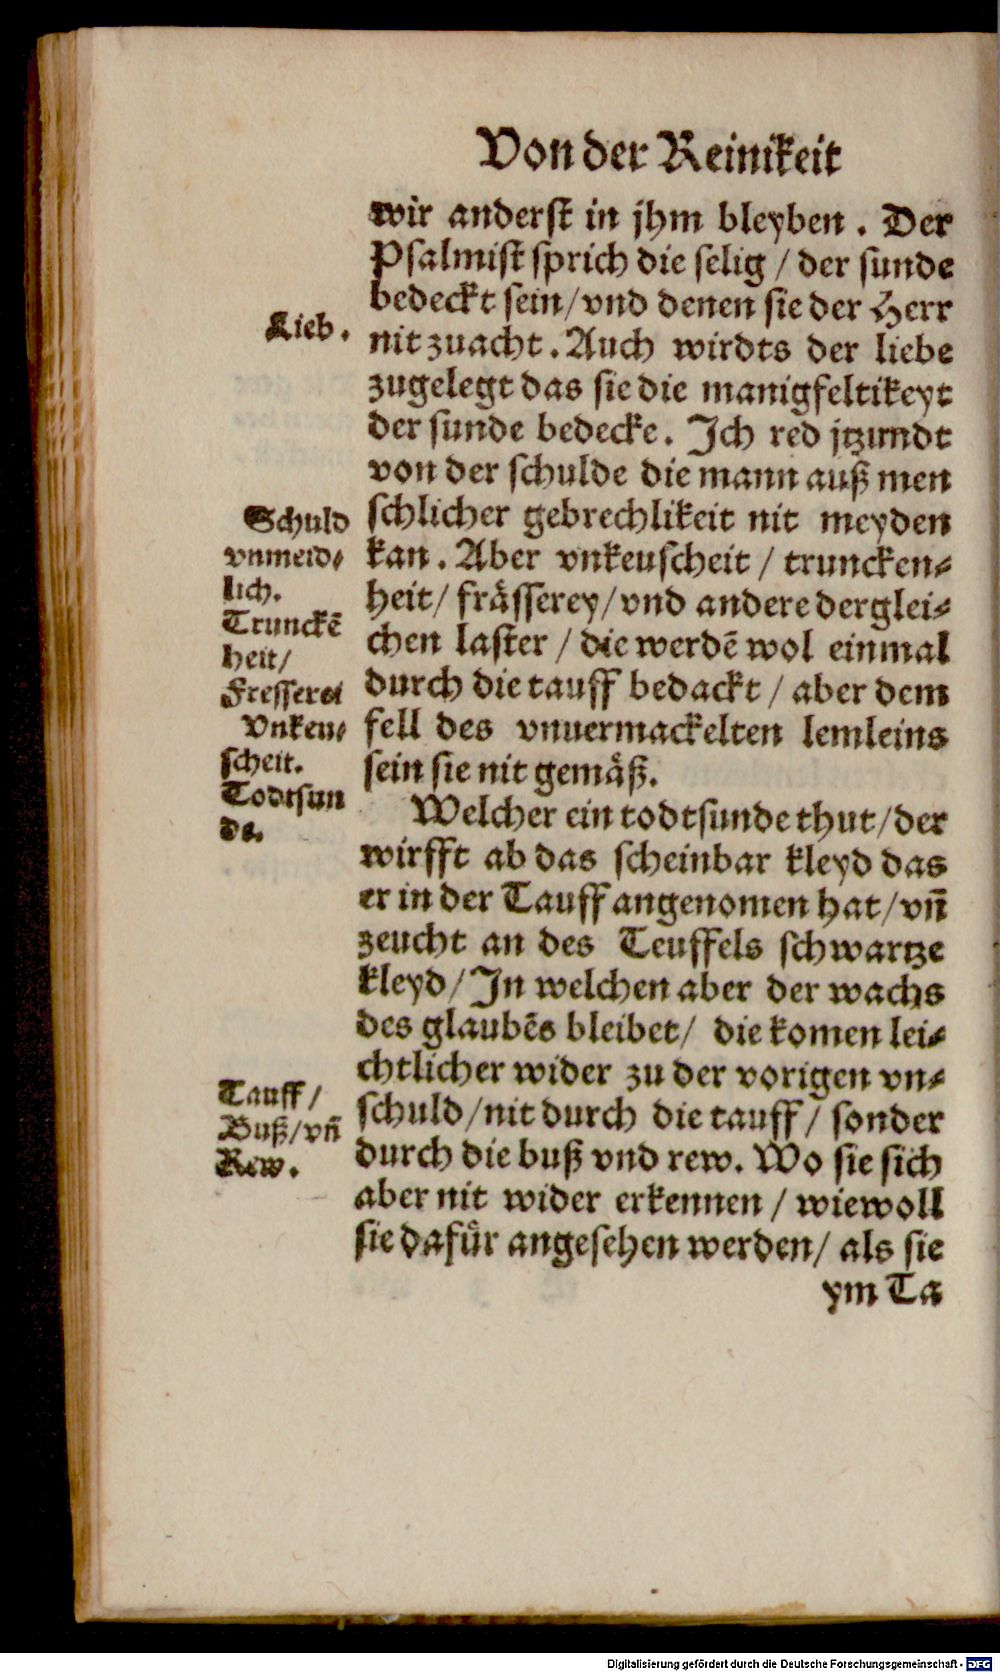 Von der Reinikeit
wir anderst in jhm bleyben. Der
Psalmist sprich die selig / der sunde
bedeckt sein/vnd denen sie der Herr
nit zuacht. Auch wirdts der liebe
zugelegt das sie die manigfeltikeyt
der sunde bedecke. Ich red jtzundt
von der schulde die mann auß men
schlicher gebrechlikeit nit meyden
kan. Aber vnkeuscheit / truncken-
heit/ frässerey/vnd andere derglei-
chen laster / die werdẽ wol einmal
durch die tauff bedackt / aber dem
fell des vnuermackelten lemleins
sein sie nit gemäß.
Welcher ein todtsunde thut/der
wirfft ab das scheinbar kleyd das
er in der Tauff angenomen hat/vñ
zeucht an des Teuffels schwartze
kleyd/In welchen aber der wachs
des glaubẽs bleibet/ die komen lei-
chtlicher wider zu der vorigen vn-
schuld/nit durch die tauff/ sonder
durch die buß vnd rew. Wo sie sich
aber nit wider erkennen / wiewoll
sie dafür angesehen werden/ als sie
ym Ta
Lieb.
Schuld
vnmeid-
lich.
Trunckẽ
heit/
Fresserei
Vnkeu-
scheit.
Todtsun
de.
Tauff/
Buß/vñ
Rew.
Digitalisierung gefördert durch die Deutsche Forschungsgemeinschaft - DFG